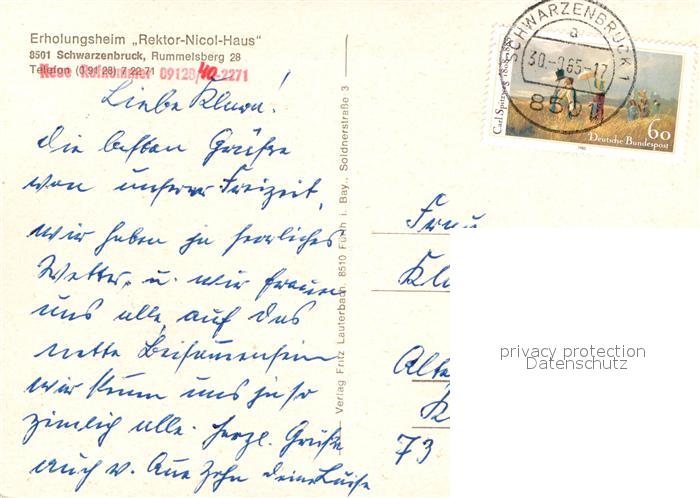 Erholungsheim „Rektor-Nicol-Haus"
8501 Schwarzenbruck, Rummelsberg 28
Telefon (0 91 28) 7 22 71
Neue Rufnummer 09128/40-2271
Liebe
die besten Grüße
von unserer Freizeit,
wir haben ja herrliches
Wetter, u. wir freuen
uns alle, auf das
nette Beisamensein
wir kenn uns ja so
zimlich alle. Herzl. Grüße
auch v. deine Luise
Verlag Fritz Lauterbach, 8510 Fürth i. Bay., Soldnerstraße 3
SCHWARZENBRUCK 1
a
8501
Carl Spitzweg 1808-1885
60
Deutsche Bundespost
Frau
Kl
Alte
K
73
privacy protection
Datenschutz